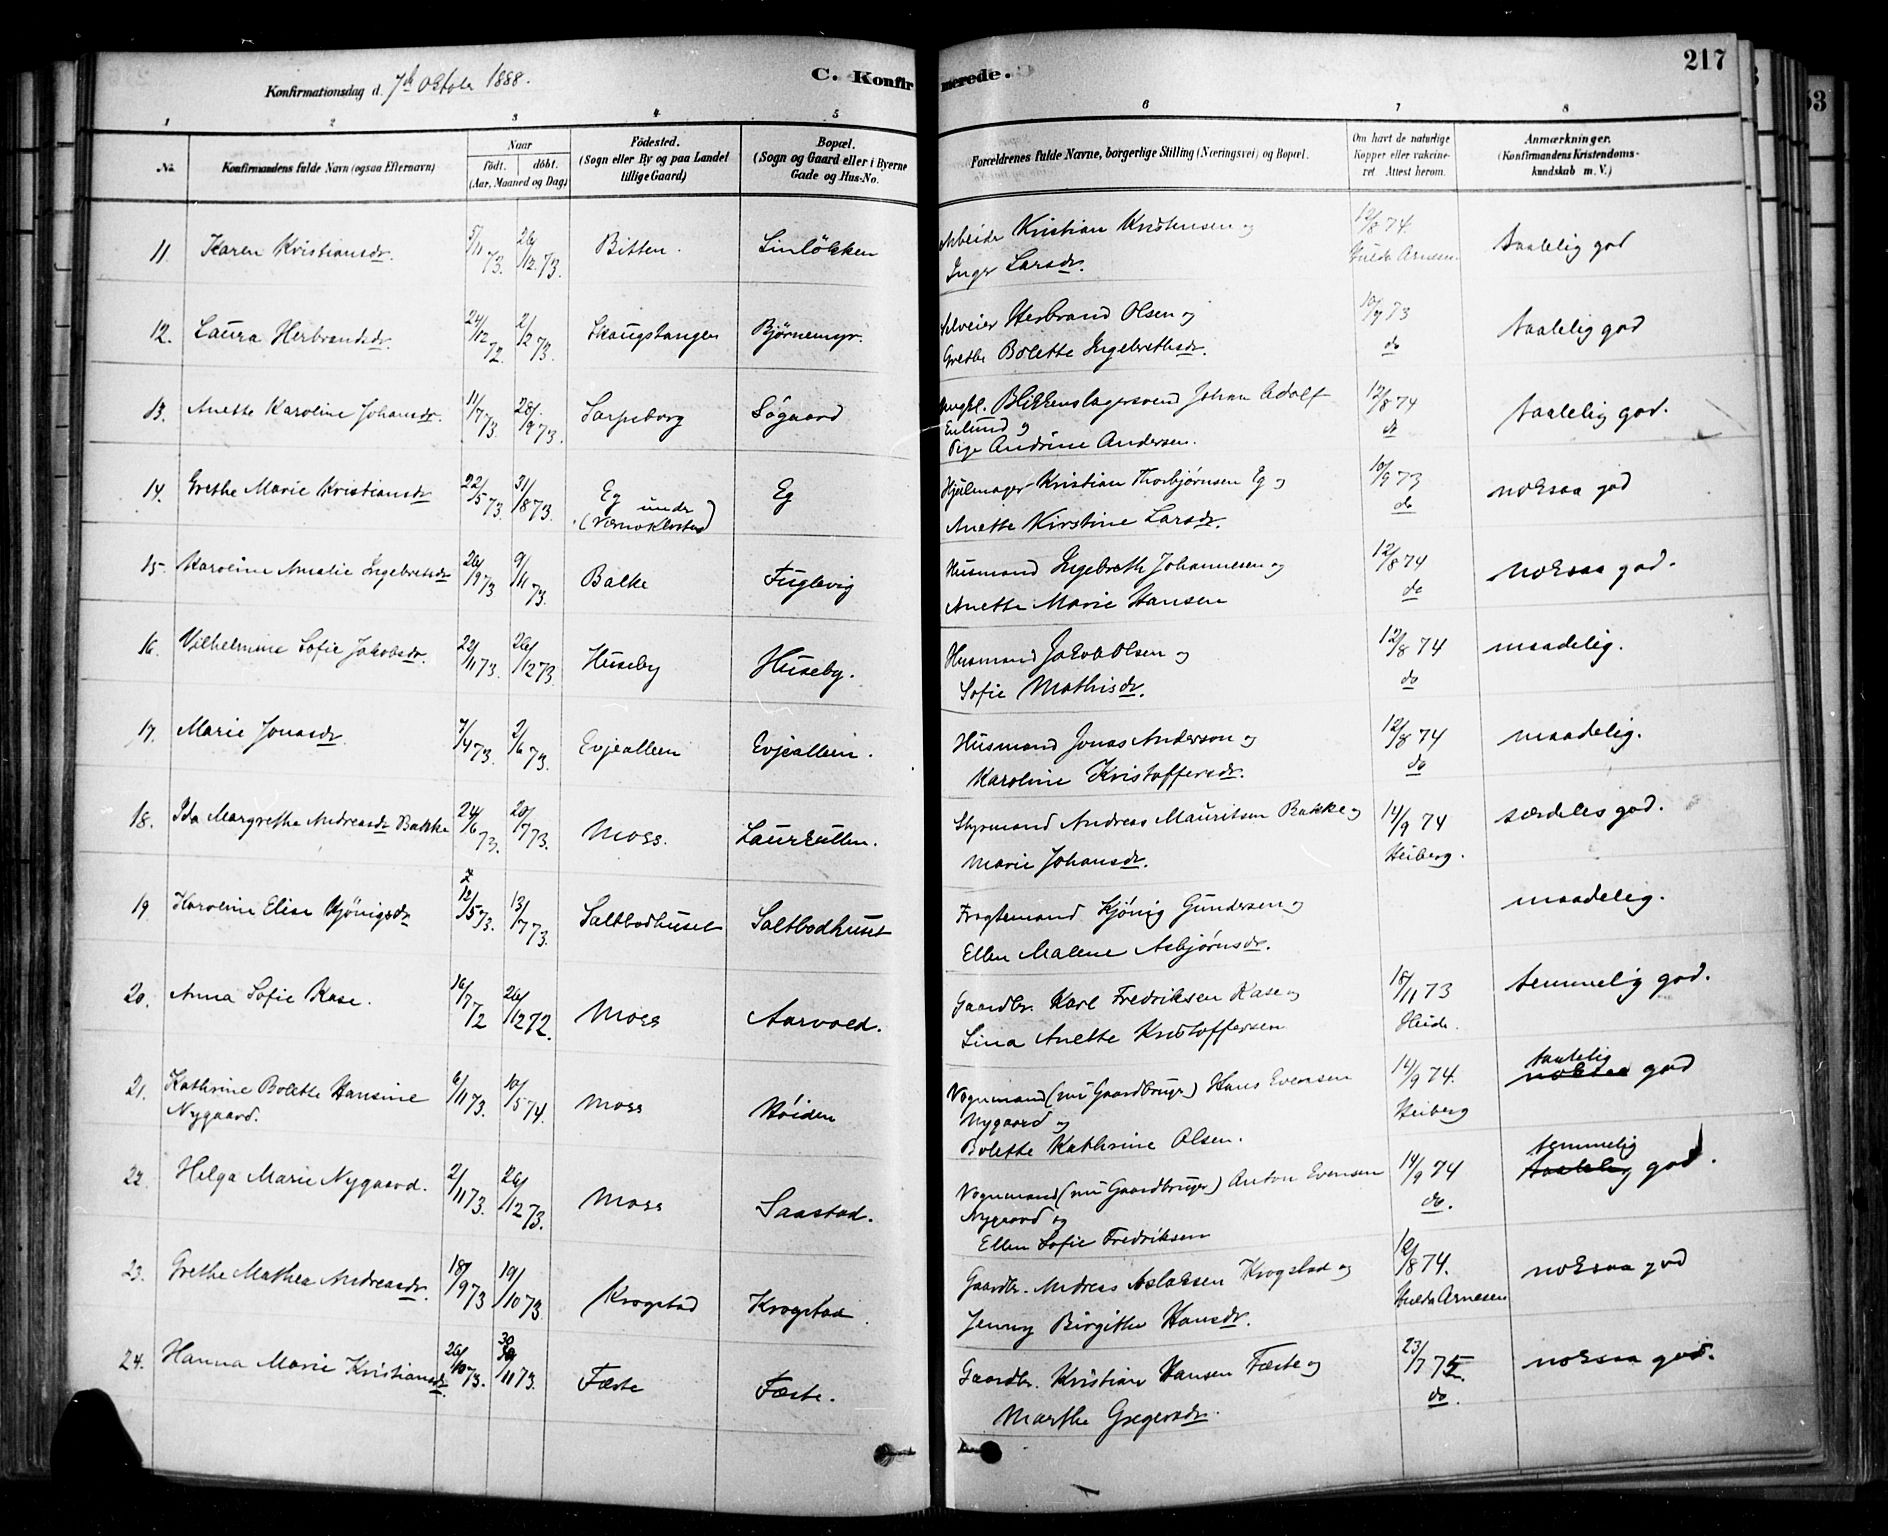 217
Konfirmationsdag d. 7de Oktober 1888.
C. Konfirmerede.
1 2 3 4 5 6 7 8
No. Konfirmandens fulde Navn (ogsaa Efternavn) Naar født. døbt. (Aar, Maaned og Dag) Födested. (Sogn eller By og paa Landet tillige Gaard) Bopæl. (Sogn og Gaard eller i Byerne Gade og Hus-No. Forældrenes fulde Navne, borgerlige Stilling (Næringsvei) og Bopæl. Om havt de naturlige Kopper eller vakcineret Attest herom. Anmærkninger. (Konfirmandens Kristendomskundskab m. V.)
11. Karen Kristiansdr. 5/11 73. 26/12 73. Bitten. Linløkken Arbeider Kristian Kristensen og 12/8 74. taalelig god
Inger Larsdr. Hulda Arnesen.
12. Laura Herbrandsdr. 24/12 72. 2/2 73. Skaugstangen Bjørnemyr. Selveier Herbrand Olsen og 10/9 73 taalelig god
Grethe Bolette Ingebrethsdr. do
13. Anette Karoline Johansdr. 11/7 73. 28/9 73. Sarpsborg Søgaard Ungkl. Blikkenslagersvend Johan Adolf 12/8 74 taalelig god.
Enlund og do
Pige Andrine Andersen.
14. Grethe Marie Kristiansdr 22/5 73. 31/8 73. Eg under (Værneklosteret) Eg Hjulmager Kristian Thorbjørnsen Eg og 10/9 73 noksaa god
Anette Kirstine Larsdr. do
15. Karoline Amalie Ingebretsdr 26/9 73 9/11 73. Balke Fuglevig Husmand Ingebreth Johannesen og 12/8 74 noksaa god.
Anette Marie Hansen do
16. Vilhelmine Sofie Jakobsdr. 22/11 73. 26/12 73. Huseby Huseby. Husmand Jakob Olsen og 12/8 74 maadelig.
Sofie Mathisdr. do
17. Marie Jonasdr. 7/4 73. 2/6 73. Evjealleen Evjealleen. Husmand Jonas Anderson og 12/8 74 maadelig.
Karoline Kristoffersdr. do
18. Ida Margrethe Andreasdr Bakke 24/6 73. 20/7 73. Moss. Laurkullen. Styrmand Andreas Mauritsen Bakke og 14/9 74 særdeles god.
Marie Johansdr. Heiberg.
19 Karoline Elise Kjønigsdr 12/5 73. 13/7 73. Saltbodhuset Saltbodhuset Fragtemand Kjønig Gundersen og maadelig.
Ellen Malene Asbjørnsdr.
20. Anna Sofie Kase. 16/7 72 26/12 72. Moss Aarvold. Gaardbr. Karl Fredriksen Kase og 18/11 73 temmelig god.
Lina Anette Kristoffersen Heide.
21. Kathrine Bolette Hansine Nygaard. 6/11 73. 10/5 74. Moss Høiden Vognmand (nu Gaardbruger) Hans Evensen 14/9 74. taalelig noksaa god
Nygaard og Heiberg
Bolette Kathrine Olsen.
22. Helga Marie Nygaard. 2/11 73. 26/12 73. Moss Saastad. Vognmand (nu Gaardbruger) Anton Evensen 14/9 74 temmelig taalelig god.
Nygaard og do.
Ellen Sofie Fredriksen
23. Grethe Mathea Andreasdr. 18/9 73 19/10 73. Krogstad Krogstad. Gaardbr. Andreas Aslaksen Krogstad og 12/8 74. noksaa god
Jenny Birgithe Hansdr. Hulda Arnesen
24. Hanna Marie Kristiansdr 26/10 73. 30/11 73. Fæste Fæste. Gaardbr. Kristian Hansen Fæste og 23/7 75. noksaa god.
Marthe Gregersdr. do.